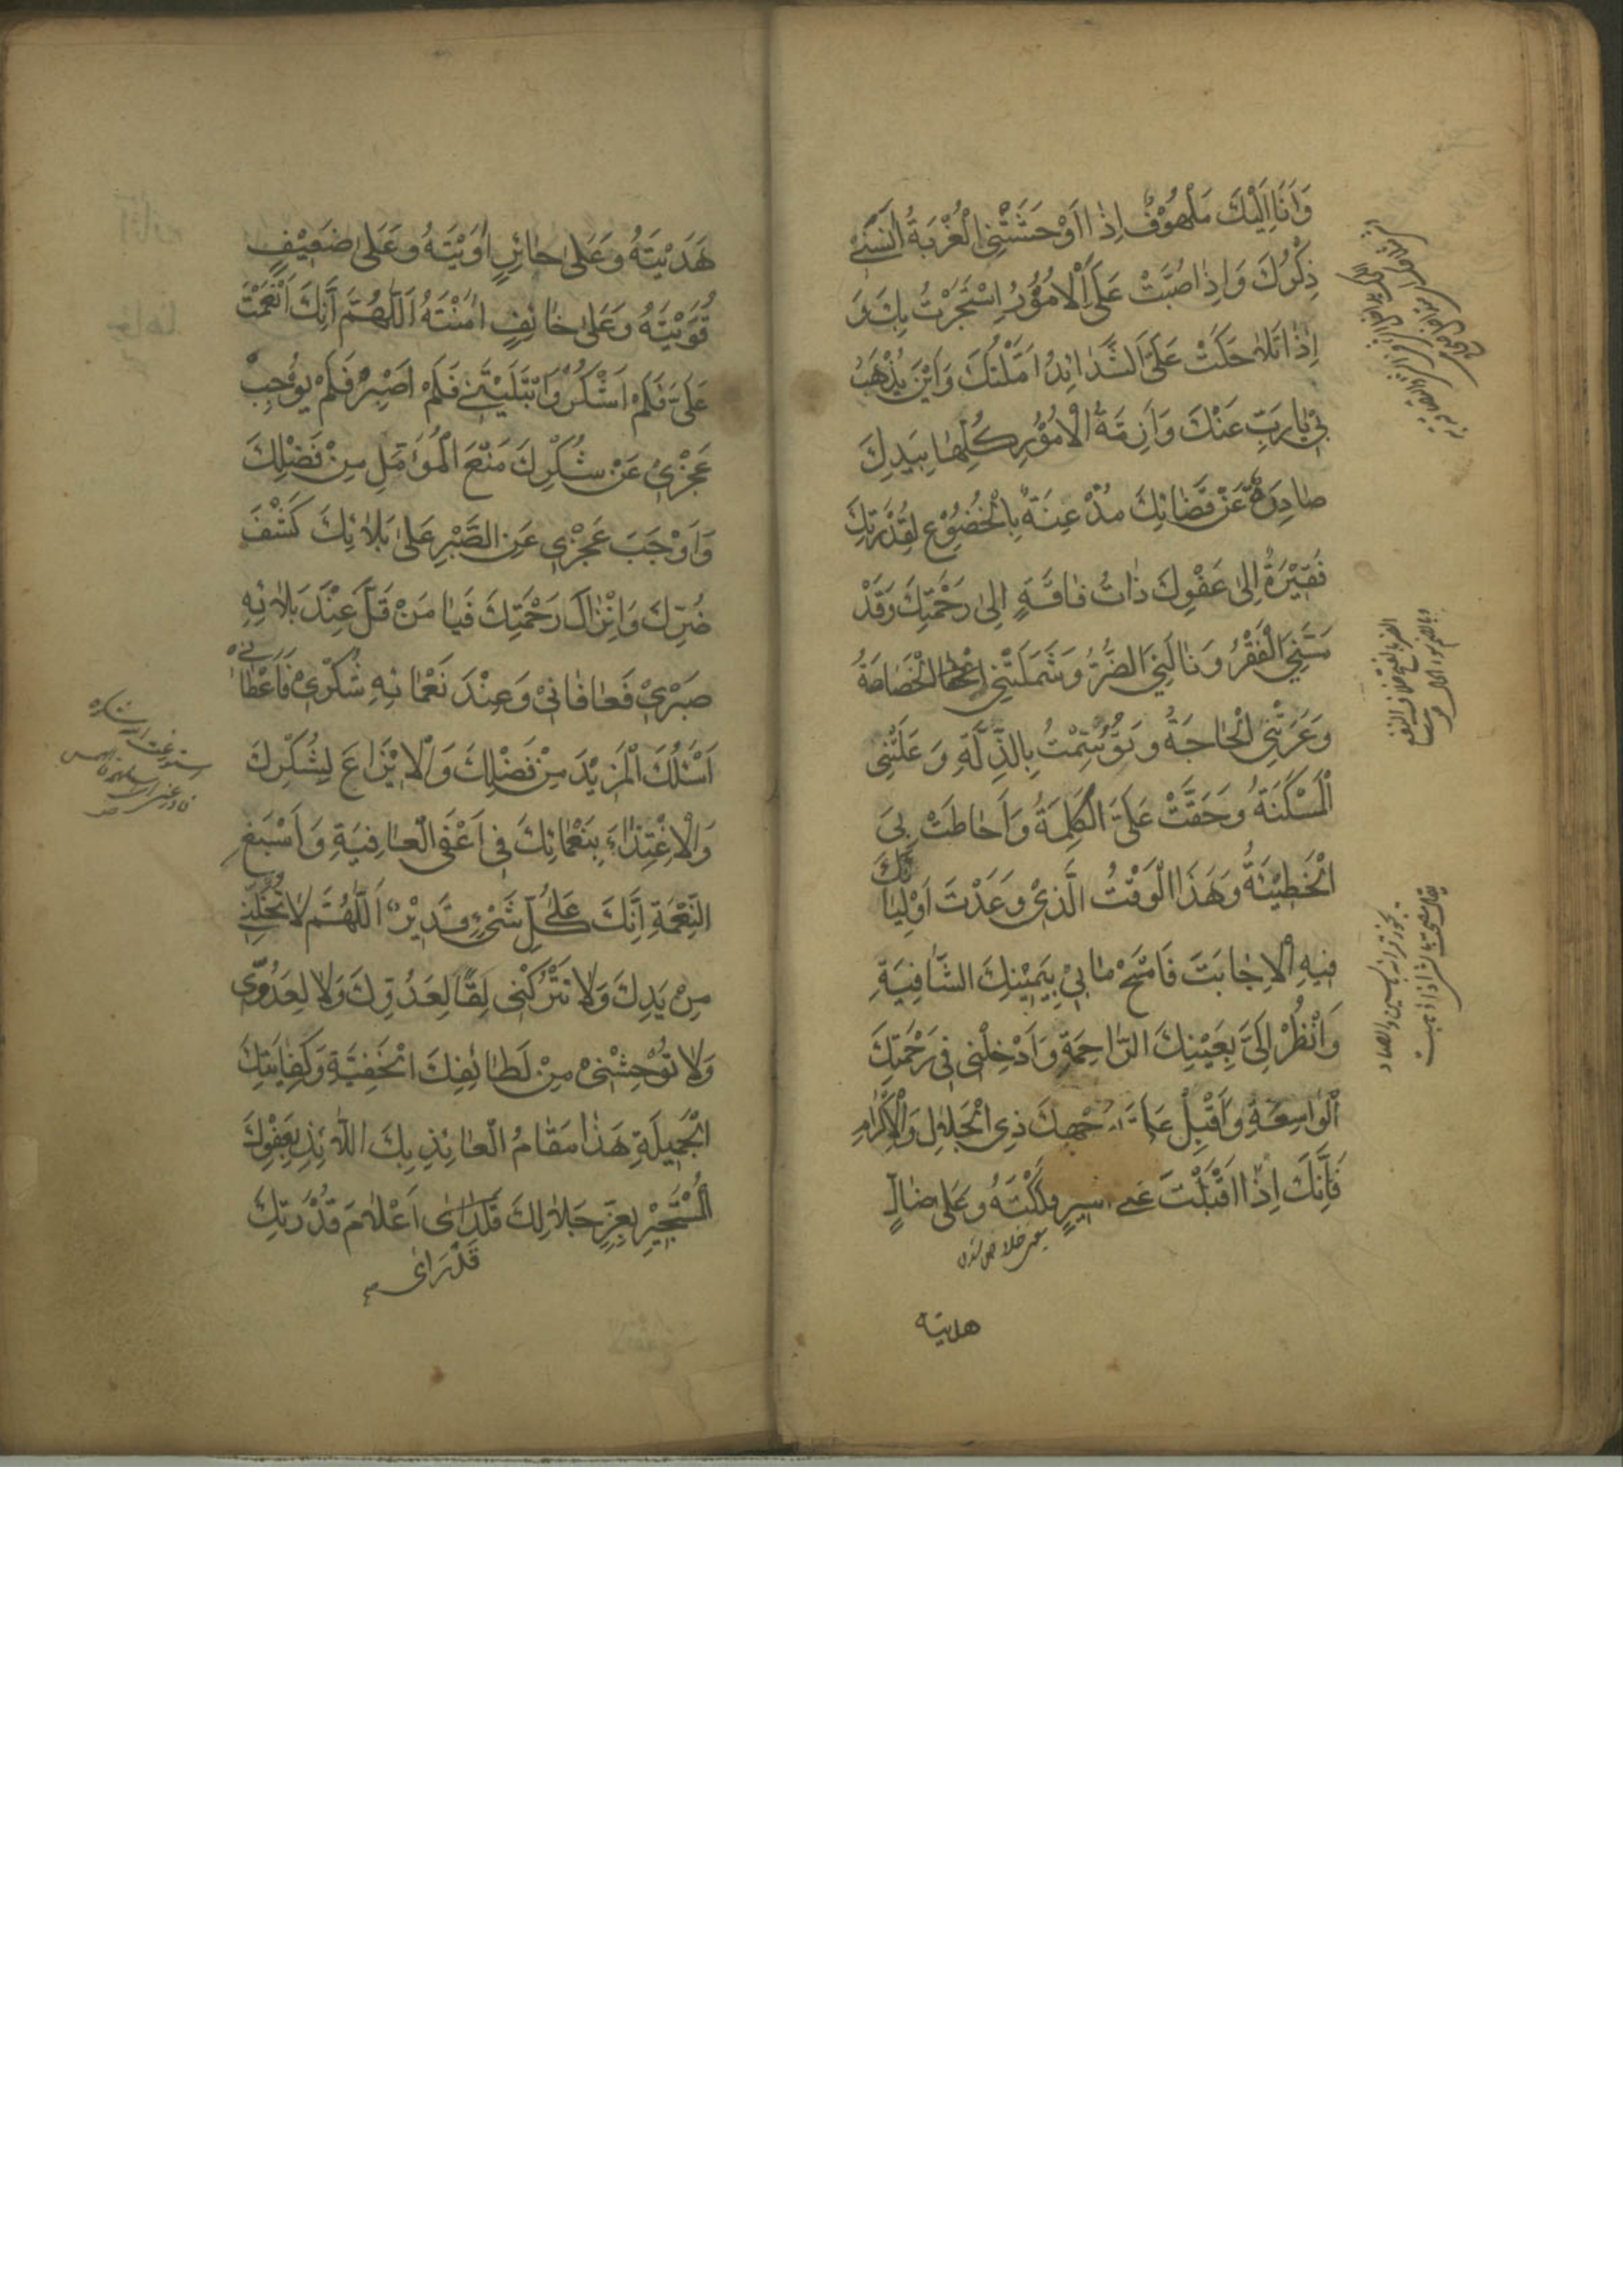 وَاَنَا اِلَيْكَ مَلْهُوْفٌ اِذٰا اَوْحَشَتْنِى الْغُرْبَةُ اٰنَسَنِى
ذِكْرُكَ وَاِذٰا صُبَّتْ عَلَىَّ الْاُمُوْرُ اِسْتَجَرْتُ بِكَ وَ
اِذٰا تَلاٰحَكَتْ عَلَىَّ الشَّدٰائِدُ اَمَّلْتُكَ وَاَيْنَ يُذْهَبُ
بِىْ يٰا رَبِّ عَنْكَ وَاَزِمَّةُ الْاُمُوْرِ كُلِّهٰا بِيَدِكَ
صٰادِرَةٌ عَنْ قَضٰائِكَ مُذْعِنَةٌ بِالْخُضُوْعِ لِقُدْرَتِكَ
فَقِيْرَةٌ اِلىٰ عَفْوِكَ ذٰاتُ فٰاقَةٍ اِلىٰ رَحْمَتِكَ وَقَدْ
مَسَّنِىَ الْفَقْرُ وَنٰالَنِىَ الضُّرُّ وَشَمَلَتْنِى الْخَصٰاصَةُ
وَعَرَتْنِى الْحٰاجَةُ وَتَوَسَّمْتُ بِالذِّلَّةِ وَعَلَتْنِى
الْمَسْكَنَةُ وَحَقَّتْ عَلَىَّ الْكَلِمَةُ وَاَحٰاطَتْ بِىَ
الْخَطِيْئَةُ وَهٰذَا الْوَقْتُ الَّذِىْ وَعَدْتَ اَوْلِيٰائَكَ
فِيهِ الْاِجٰابَتَ فَامْسَحْ مٰا بِىْ بِيَمِيْنِكَ الشّٰافِيَةِ
وَانْظُرْ اِلَىَّ بِعَيْنِكَ الرّٰاحِمَةِ وَاَدْخِلْنِى فِى رَحْمَتِكَ
الْوٰاسِعَةِ وَاَقْبِلْ عَلَىَّ بِوَجْهِكَ ذِى الْجَلاٰلِ وَالْاِكْرٰامِ
فَاِنَّكَ اِذٰا اَقْبَلْتَ عَلىٰ اَسِيرٍ فَكَكْتَهُ وَعَلىٰ ضٰالٍّ
هديته
هَدَيْتَهُ وَعَلىٰ حٰائِرٍ اٰوَيْتَهُ وَعَلىٰ ضَعِيْفٍ
قَوَّيْتَهُ وَعَلىٰ خٰائِفٍ اٰمَنْتَهُ اَللّٰهُمَّ اِنَّكَ اَنْعَمْتَ
عَلَىَّ فَلَمْ اَشْكُرْ وَابْتَلَيْتَنِى فَلَمْ اَصْبِرْ فَلَمْ يُوْجِبْ
عَجْزِىْ عَنْ شُكْرِكَ مَنْعَ الْمُؤَمَّلِ مِنْ فَضْلِكَ
وَاَوْجَبَ عَجْزِى عَنِ الصَّبْرِ عَلىٰ بَلاٰئِكَ كَشْفَ
ضُرِّكَ وَاِنْزٰالَ رَحْمَتِكَ فَيٰا مَنْ قَلَّ عِنْدَ بَلاٰئِهِ
صَبْرِىْ فَعٰافٰانِىْ وَعِنْدَ نَعْمٰائِهِ شُكْرِىْ فَاَعْطٰانِى
اَسْئَلُكَ الْمَزِيْدَ مِنْ فَضْلِكَ وَالْاِيْزٰاعَ لِشُكْرِكَ
وَالْاِغْتِذٰاءَ بِنَعْمٰائِكَ فِى اَعْفَى الْعٰافِيَةِ وَاَسْبَغِ
النِّعْمَةِ اِنَّكَ عَلىٰ كُلِّ شَىْءٍ قَدِيْرٌ اَللّٰهُمَّ لاٰ تُخَلِّنِى
مِنْ يَدِكَ وَلاٰ تَتْرُكْنِى لِقًا لِعَدُوِّكَ وَلاٰ لِعَدُوِّى
وَلاٰ تُوْحِشْنِىْ مِنْ لَطٰائِفِكَ الْخَفِيَّةِ وَكِفٰايَتِكَ
الْجَمِيلَةِ هٰذٰا مَقٰامُ الْعٰائِذِ بِكَ اللّٰائِذِ بِعَفْوِكَ
الْمُسْتَجِيْرِ بِعِزِّ جَلاٰلِكَ قَدْ رَاٰى اَعْلاٰمَ قُدْرَتِكَ
قَدْ رَاٰى